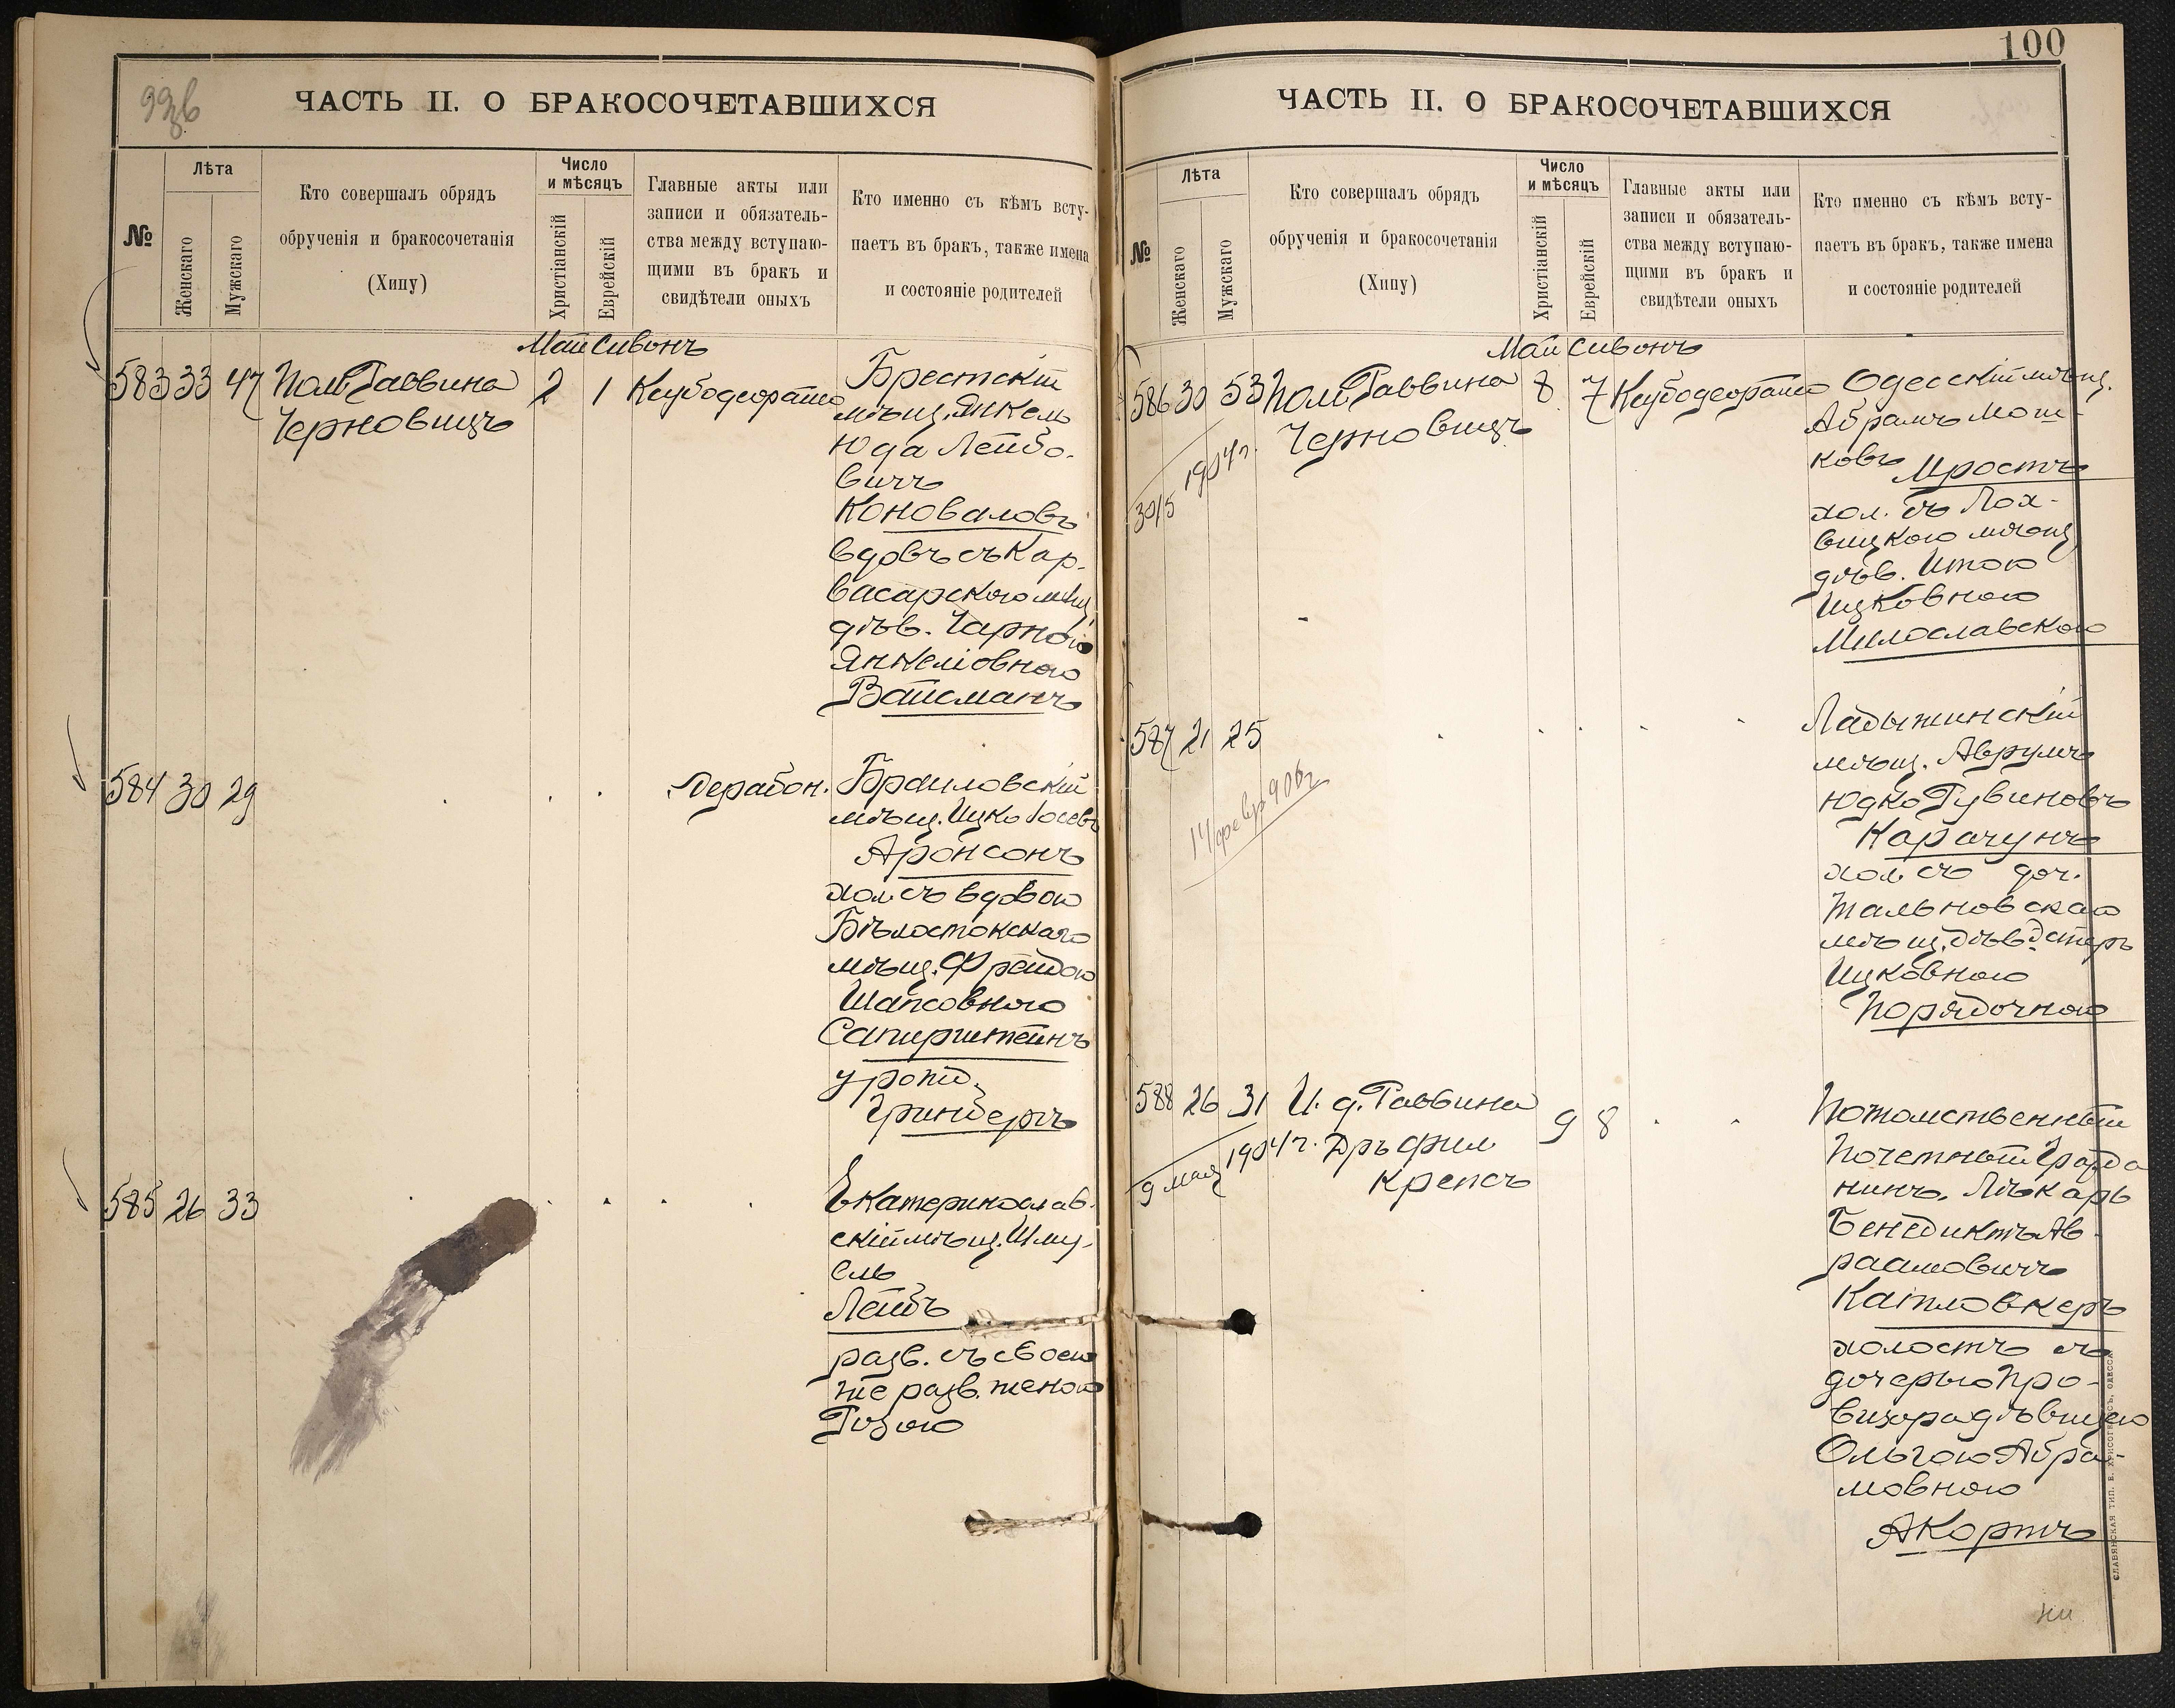 99об
ЧАСТЬ II. О БРАКОСОЧЕТАВШИХСЯ
№
Лѣта
Женскаго
Мужскаго
Кто совершалъ обрядъ
обрученія и бракосочетанія
(Хипу)
Число
и мѣсяцъ
Христіанскій
Еврейскій
Главные акты или
записи и обязатель-
ства между вступаю-
щими въ бракъ и
свидѣтели оныхъ
Кто именно съ кѣмъ всту-
паетъ въ бракъ, также имена
и состояніе родителей
Май Сивонъ
583 33 47 Пом. Раввина 2 1 Кеубодеорайсо Брестскій
Черновицъ
мѣщ. Янкель
Юда Лейбо-
вичъ
Коноваловъ
вдовъ съ Кар-
васарскою мѣщ.
дѣв. Чарною
Янкеліовною
Вайсманъ
584 30 29 Дерабон. Браиловскій
мѣщ. Ицко Іосевъ
Аронсонъ
хол. съ вдовою
Бѣлостокскаго
мѣщ. Фрейдою
Шапсовною
Сапирштейнъ
урожд.
Гринбергъ
585 26 33 Екатеринослав-
скій мѣщ. Шму-
ель
Лейбъ
разв. съ своею
же разв. женою
Розою
100
ЧАСТЬ II. О БРАКОСОЧЕТАВШИХСЯ
№
Лѣта
Женскаго
Мужскаго
Кто совершалъ обрядъ
обрученія и бракосочетанія
(Хипу)
Число
и мѣсяцъ
Христіанскій
Еврейскій
Главные акты или
записи и обязатель-
ства между вступаю-
щими въ бракъ и
свидѣтели оныхъ
Кто именно съ кѣмъ всту-
паетъ въ бракъ, также имена
и состояніе родителей
Май Сивонъ
586 30 53 Пом. Раввина 8 7 Кеубодеорайсо Одесскій мѣщ.
Черновицъ
30/5 1904г.
Абрамъ Мош-
ковъ Простъ
хол. съ Лох-
вицкою мѣщ.
дѣв. Итою
Ицковною
Милославскою
587 21 25 Ладыжинскій
14 февр 906г
мѣщ. Аврумъ
Юдко Рувиновъ
Карачунъ
хол. съ доч.
Тальновскаго
мѣщ. дѣв. Эстеръ
Ицковною
Порядочною
588 26 31 И. д. Раввина 9 8 Потомственный
9 мая 1904г. Дръ Фил
Крепсъ
Почетный Гражда
нинъ, Лѣкарь
Бенедиктъ Ав-
раамовичъ
Кайпловкеръ
холостъ съ
дочерью Про-
визора дѣвицею
Ольгою Абра-
мовною
Акортъ
СЛАВЯНСКАЯ ТИП. Е. ХРИСОГЕЛОСЪ, ОДЕССА